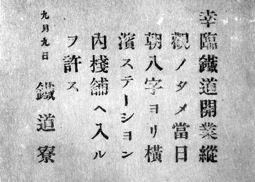 幸臨鐵道開業縱
觀ノタメ當日
朝八字ヨリ橫
濱ステーション
內棧舖ヘ入ル
ヲ許ス
九月九日
鐵道寮